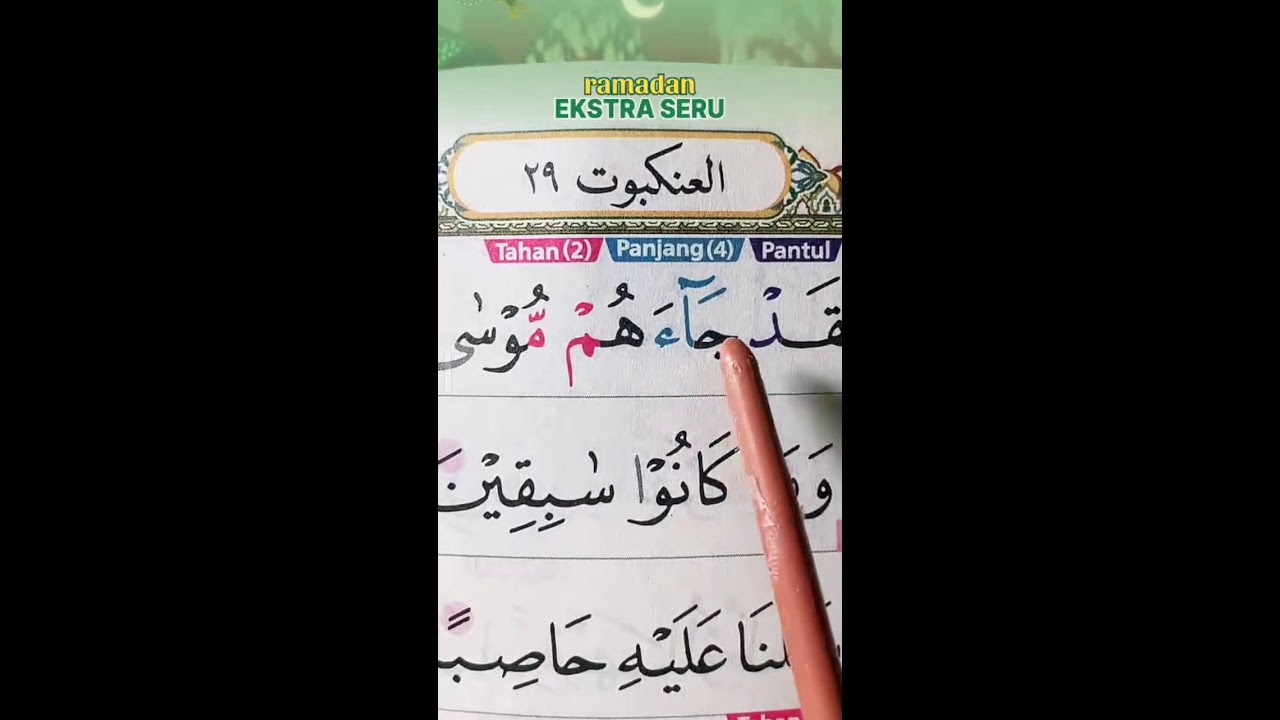 ramadan
EKSTRA SERU
العنكبوت ٢٩
Tahan (2) Panjang (4) Pantul
قَدْ جَآءَهُمْ مُّوْسٰى
كَانُوْا سٰبِقِيْنَ
عَلَيْهِ حَاصِبًا